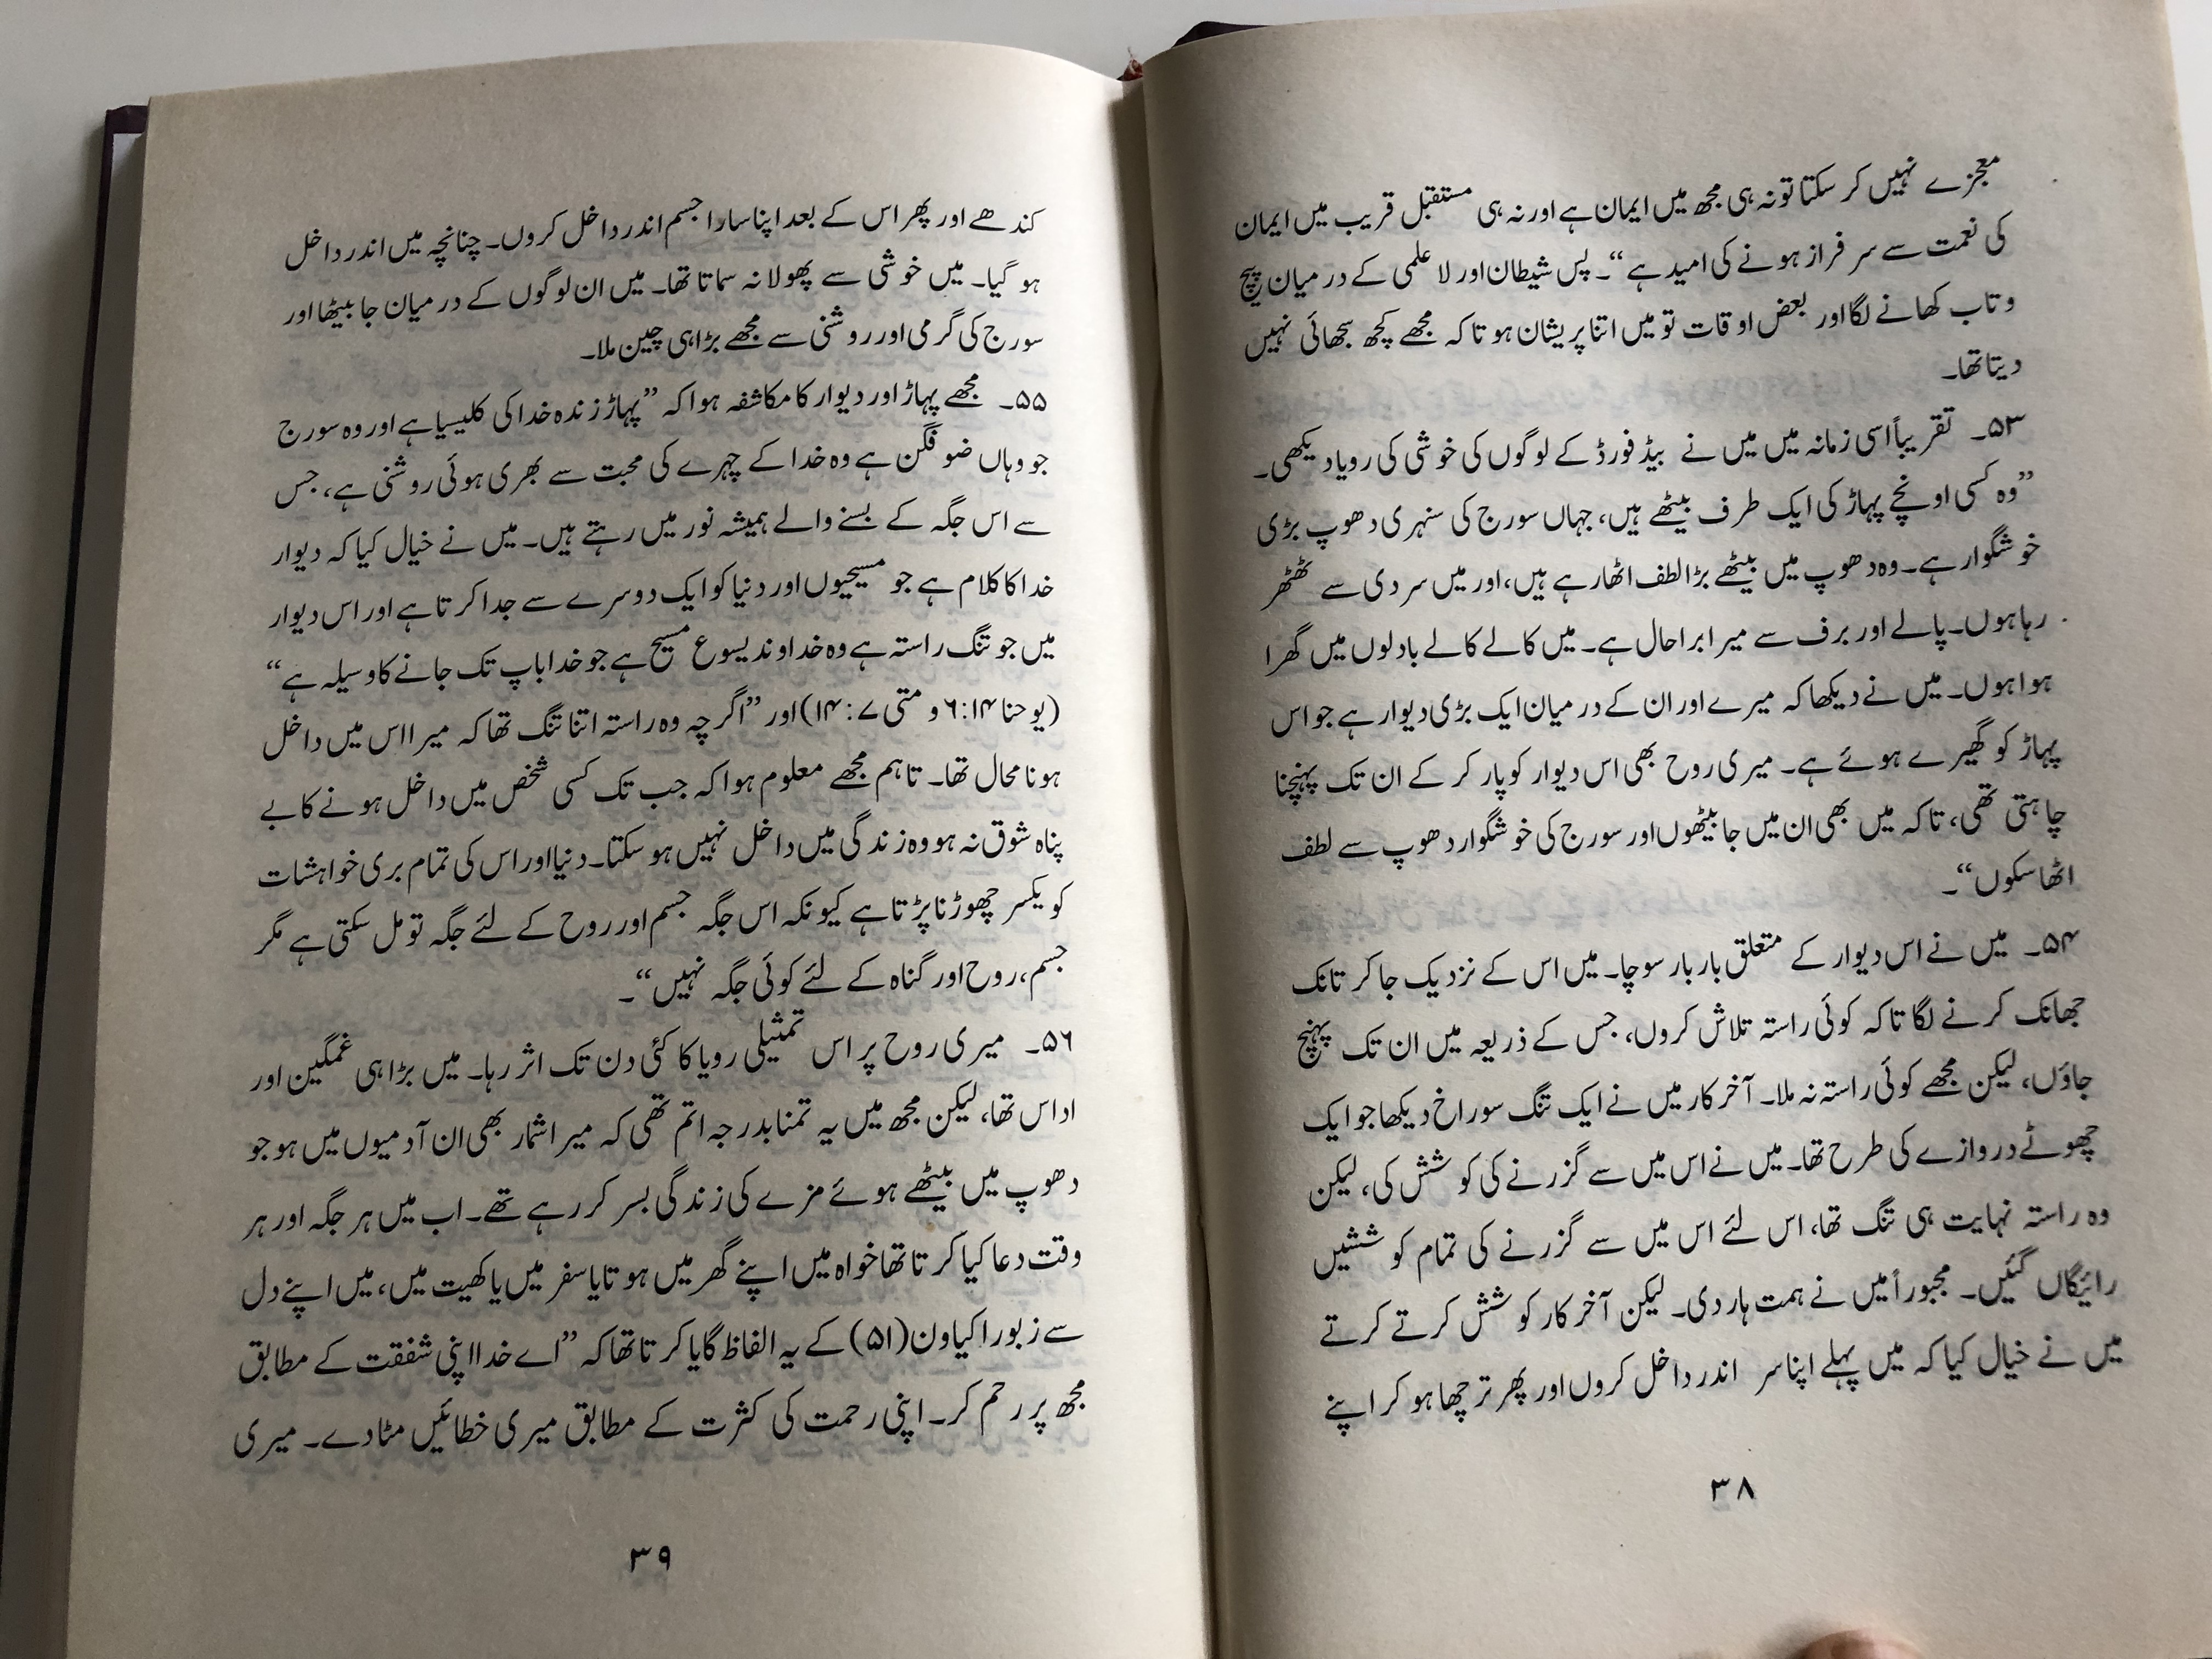 معجزے نہیں کر سکتا تو نہ ہی مجھ میں ایمان ہے اور نہ ہی مستقبل قریب میں ایمان
کی نعمت سے سرفراز ہونے کی امید ہے“۔ پس شیطان اور لا علمی کے درمیان پیچ
و تاب کھانے لگا اور بعض اوقات تو میں اتنا پریشان ہوتا کہ مجھے کچھ سجھائی نہیں
دیتا تھا۔
۵۳۔ تقریباً اسی زمانہ میں میں نے بیڈ فورڈ کے لوگوں کی خوشی کی رویا دیکھی۔
”وہ کسی اونچے پہاڑ کی ایک طرف بیٹھے ہیں، جہاں سورج کی سنہری دھوپ بڑی
خوشگوار ہے۔ وہ دھوپ میں بیٹھے بڑا لطف اٹھا رہے ہیں، اور میں سردی سے ٹھٹھر
رہا ہوں۔ پالے اور برف سے میرا برا حال ہے۔ میں کالے کالے بادلوں میں گھرا
ہوا ہوں۔ میں نے دیکھا کہ میرے اور ان کے درمیان ایک بڑی دیوار ہے جو اس
پہاڑ کو گھیرے ہوئے ہے۔ میری روح بھی اس دیوار کو پار کر کے ان تک پہنچنا
چاہتی تھی، تاکہ میں بھی ان میں جا بیٹھوں اور سورج کی خوشگوار دھوپ سے لطف
اٹھا سکوں“۔
۵۴۔ میں نے اس دیوار کے متعلق بار بار سوچا۔ میں اس کے نزدیک جا کر تانک
جھانک کرنے لگا تاکہ کوئی راستہ تلاش کروں، جس کے ذریعہ میں ان تک پہنچ
جاؤں، لیکن مجھے کوئی راستہ نہ ملا۔ آخر کار میں نے ایک تنگ سوراخ دیکھا جو ایک
چھوٹے دروازے کی طرح تھا۔ میں نے اس میں سے گزرنے کی کوشش کی، لیکن
وہ راستہ نہایت ہی تنگ تھا، اس لئے اس میں سے گزرنے کی تمام کوششیں
رائیگاں گئیں۔ مجبوراً میں نے ہمت ہار دی۔ لیکن آخر کار کوشش کرتے کرتے
میں نے خیال کیا کہ میں پہلے اپنا سر اندر داخل کروں اور پھر ترچھا ہو کر اپنے
۳۸
کندھے اور پھر اس کے بعد اپنا سارا جسم اندر داخل کروں۔ چنانچہ میں اندر داخل
ہو گیا۔ میں خوشی سے پھولا نہ سماتا تھا۔ میں ان لوگوں کے درمیان جا بیٹھا اور
سورج کی گرمی اور روشنی سے مجھے بڑا ہی چین ملا۔
۵۵۔ مجھے پہاڑ اور دیوار کا مکاشفہ ہوا کہ ”پہاڑ زندہ خدا کی کلیسیا ہے اور وہ سورج
جو وہاں ضو فگن ہے وہ خدا کے چہرے کی محبت سے بھری ہوئی روشنی ہے، جس
سے اس جگہ کے بسنے والے ہمیشہ نور میں رہتے ہیں۔ میں نے خیال کیا کہ دیوار
خدا کا کلام ہے جو مسیحیوں اور دنیا کو ایک دوسرے سے جدا کرتا ہے اور اس دیوار
میں جو تنگ راستہ ہے وہ خداوند یسوع مسیح ہے جو خدا باپ تک جانے کا وسیلہ ہے“
(یوحنا ۱۴:۶ و متی ۷:۱۴) اور ”اگرچہ وہ راستہ اتنا تنگ تھا کہ میرا اس میں داخل
ہونا محال تھا۔ تاہم مجھے معلوم ہوا کہ جب تک کسی شخص میں داخل ہونے کا بے
پناہ شوق نہ ہو وہ زندگی میں داخل نہیں ہو سکتا۔ دنیا اور اس کی تمام بری خواہشات
کو یکسر چھوڑنا پڑتا ہے کیونکہ اس جگہ جسم اور روح کے لئے جگہ تو مل سکتی ہے مگر
جسم، روح اور گناہ کے لئے کوئی جگہ نہیں“۔
۵۶۔ میری روح پر اس تمثیلی رویا کا کئی دن تک اثر رہا۔ میں بڑا ہی غمگین اور
اداس تھا، لیکن مجھ میں یہ تمنا بدرجہ اتم تھی کہ میرا شمار بھی ان آدمیوں میں ہو جو
دھوپ میں بیٹھے ہوئے مزے کی زندگی بسر کر رہے تھے۔ اب میں ہر جگہ اور ہر
وقت دعا کیا کرتا تھا خواہ میں اپنے گھر میں ہوتا یا سفر میں یا کھیت میں، میں اپنے دل
سے زبور اکیاون (۵۱) کے یہ الفاظ گایا کرتا تھا کہ ”اے خدا اپنی شفقت کے مطابق
مجھ پر رحم کر۔ اپنی رحمت کی کثرت کے مطابق میری خطائیں مٹا دے۔ میری
۳۹